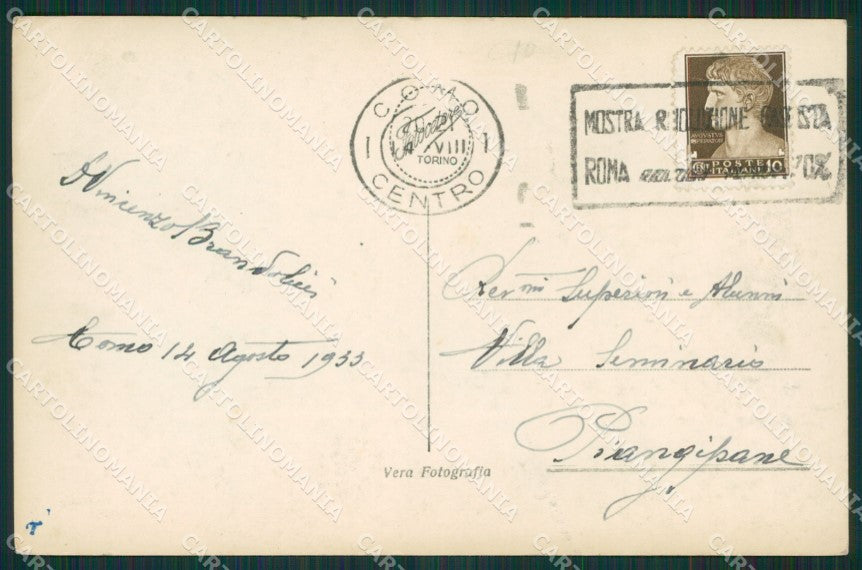 COMO
CENTRO
TORINO
MOSTRA RIVOLUZIONE FASCISTA
ROMA 70%
AVGVSTVS
IMPERATOR
POSTE
ITALIANE
10
Vincenzo Brandolini
Como 14 Agosto 1933
Rev.mi Superiori e Alunni
Villa Seminario
Piangipane
Vera Fotografia
CARTOLINOMANIA